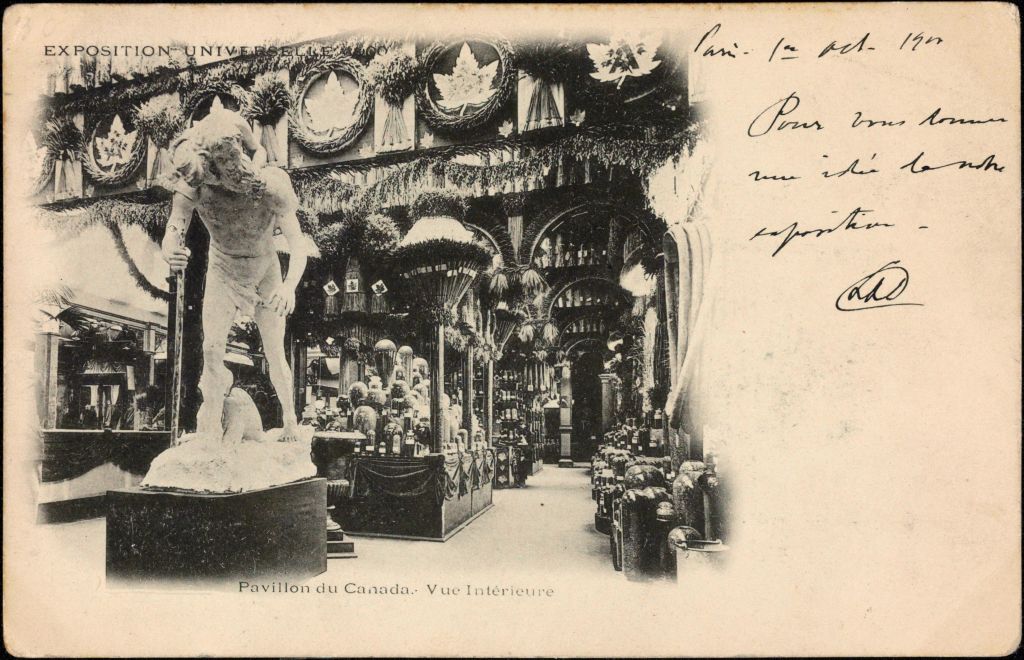 EXPOSITION UNIVERSELLE 1900
Paris - 1er oct - 1900
Pour vous donner
une idée de notre
exposition -
Pavillon du Canada.- Vue Intérieure